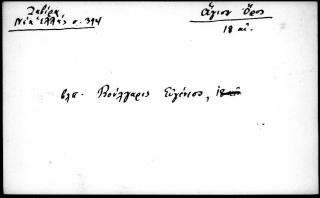 Ζαβίρα,
Νέα Ἑλλάς σ. 394
Ἅγιον Ὄρος
18 αἰ.
βλπ. Βούλγαρις Εὐγένιος,